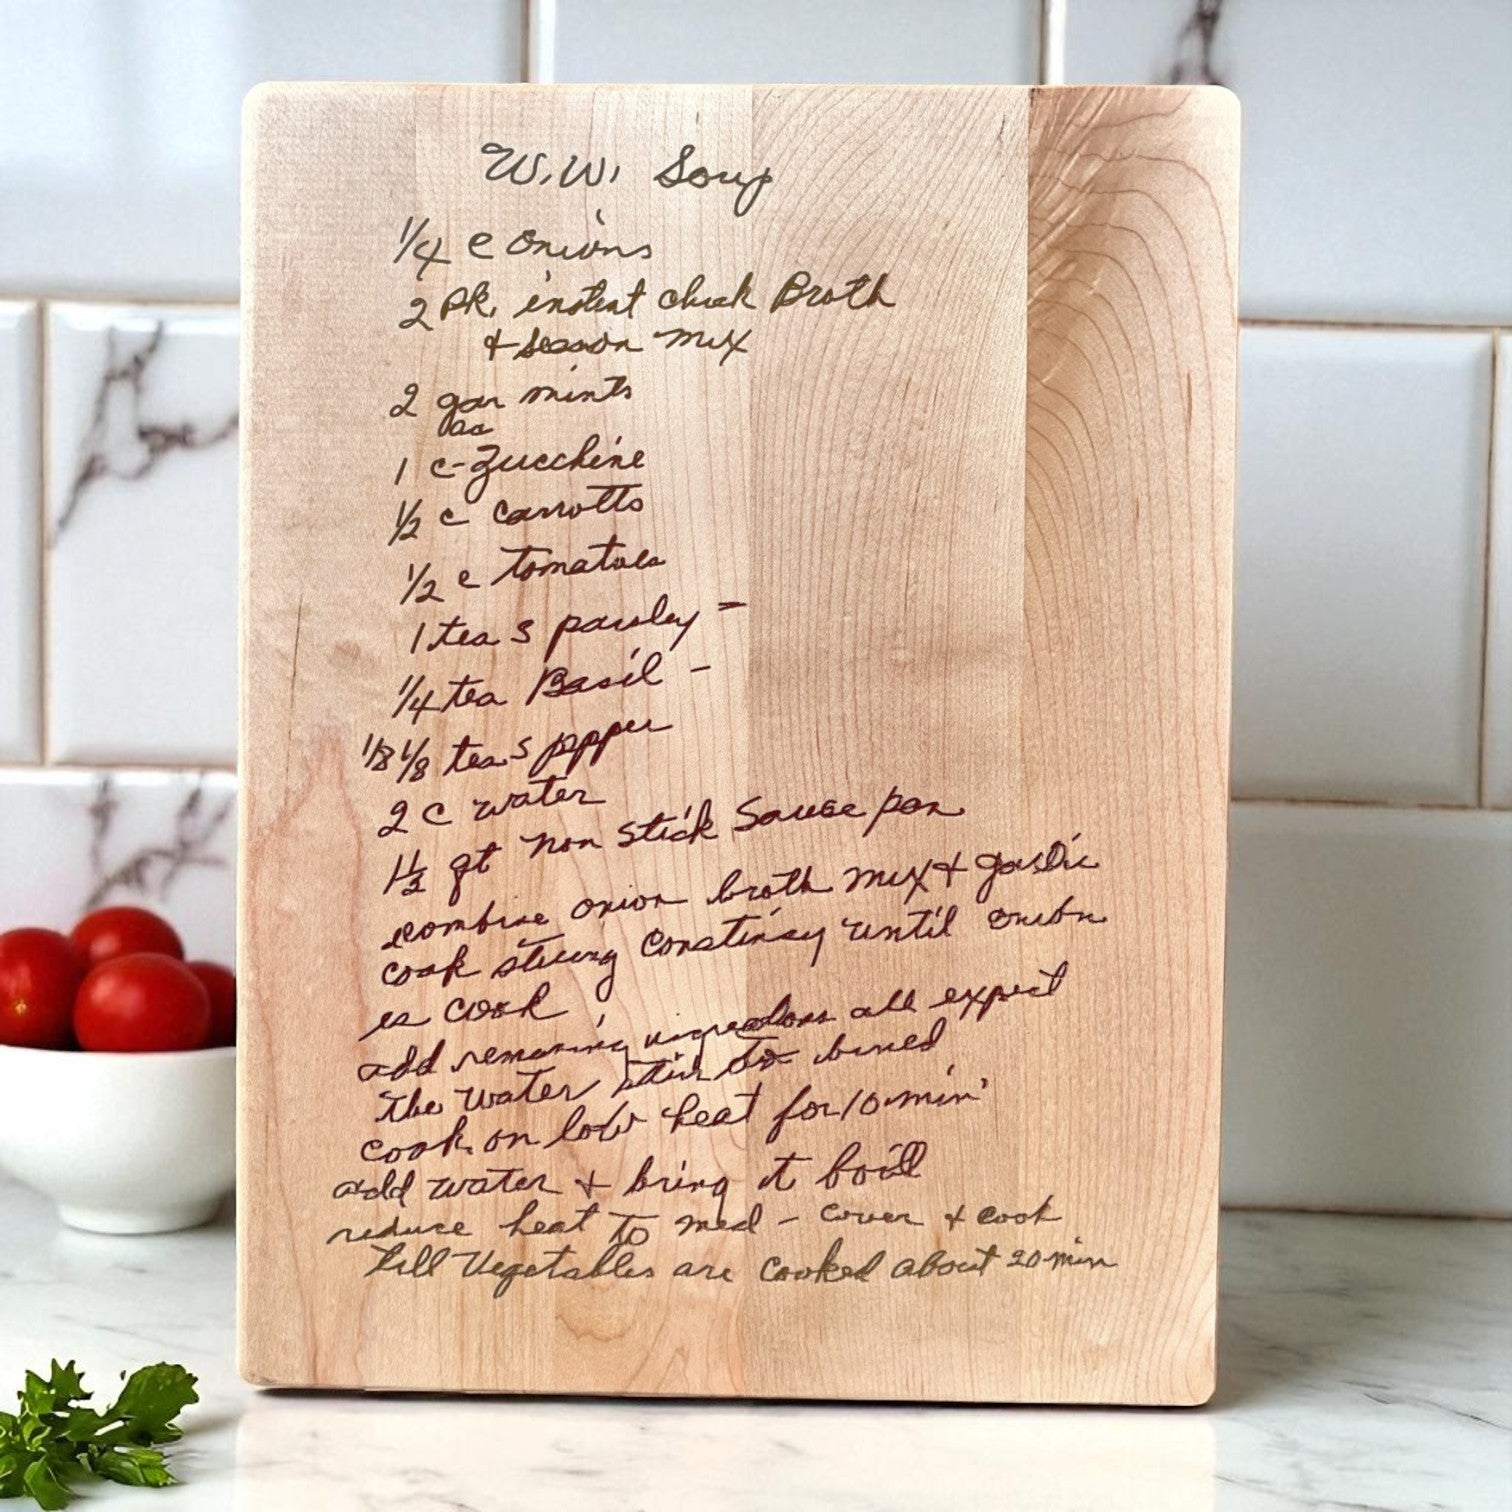 W.W. Soup
1/4 c onions
2 Pk. instent chick Broth
+ season mix
2 gar mints
1 c-Zucchine
1/2 c carrotts
1/2 c tomatoes
1 tea s parsley -
1/4 tea Basil -
1/8 1/8 tea s ppper
2 c water
1 1/2 qt non stick sause pan
combine onion broth mix + garlic
cook stiring constinsy until onion
is cook
add remaining ingredions all expect
the water stir to
cook on low heat for 10 min
add water + bring it boil
reduce heat to med - cover + cook
till Vegetables are cooked about 20 min